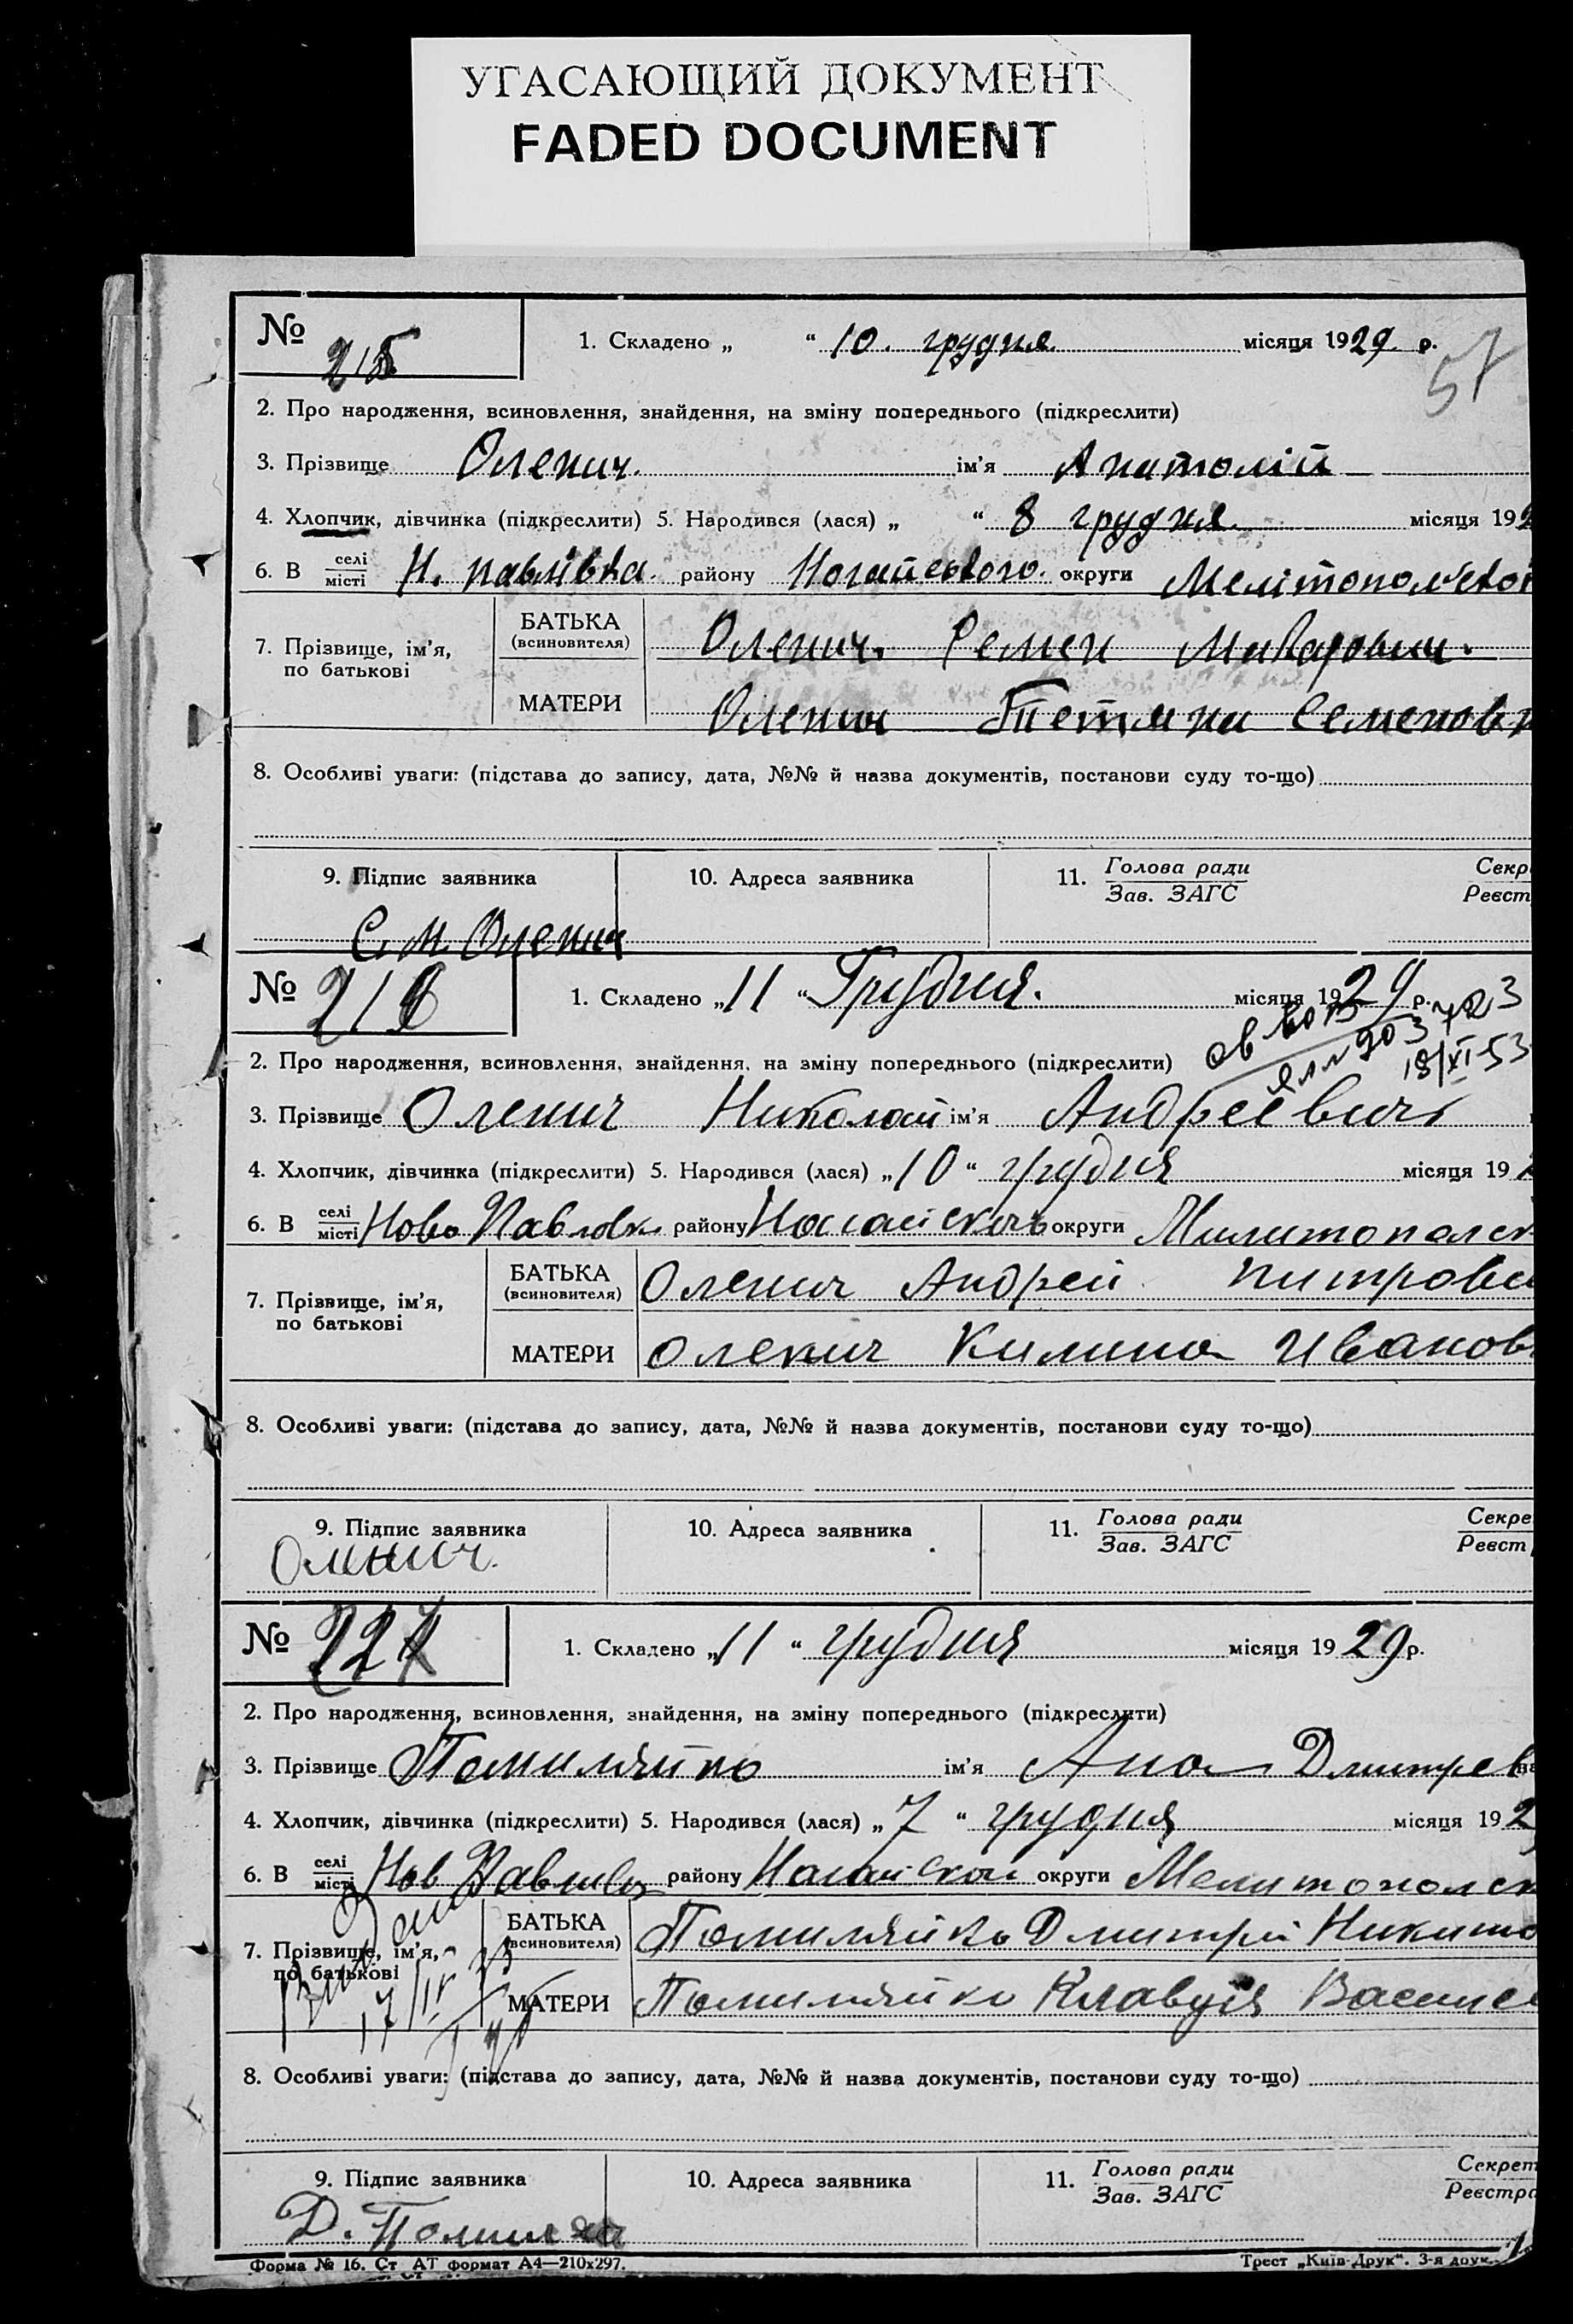 УГАСАЮЩИЙ ДОКУМЕНТ
FADED DOCUMENT
57
№ 215
1. Складено „ “ 10. грудня місяця 1929 р.
2. Про народження, всиновлення, знайдення, на зміну попереднього (підкреслити)
3. Прізвище Оленич. ім'я Анатолій
4. Хлопчик, дівчинка (підкреслити) 5. Народився (лася) „ “ 8 грудня. місяця 192
6. В селі/місті Н. павлівка. району Ногайського. округи Мелітопольськой
7. Прізвище, ім'я, по батькові
БАТЬКА (всиновителя) Оленич. Семен Макарович.
МАТЕРИ Оленич Тетяна Семеновн
8. Особливі уваги: (підстава до запису, дата, №№ й назва документів, постанови суду то-що)
9. Підпис заявника 10. Адреса заявника 11. Голова ради/Зав. ЗАГС Секр/Реєст
С. М. Оленич
№ 216
1. Складено „11“ Грудня. місяця 1929 р.
18/XI-53
2. Про народження, всиновлення, знайдення, на зміну попереднього (підкреслити)
3. Прізвище Оленич Николай ім'я Андреевич
4. Хлопчик, дівчинка (підкреслити) 5. Народився (лася) „10“ грудня місяця 19
6. В селі/місті Ново Павловк району округи
7. Прізвище, ім'я, по батькові
БАТЬКА (всиновителя) Оленич Андрей питрови
МАТЕРИ Оленич Килина Иванов
8. Особливі уваги: (підстава до запису, дата, №№ й назва документів, постанови суду то-що)
9. Підпис заявника 10. Адреса заявника 11. Голова ради/Зав. ЗАГС Секре/Реєст
№
1. Складено „11“ грудня місяця 1929 р.
2. Про народження, всиновлення, знайдення, на зміну попереднього (підкреслити)
3. Прізвище Помиляйко ім'я Ана Дмитрев
4. Хлопчик, дівчинка (підкреслити) 5. Народився (лася) „7“ грудня місяця 192
6. В селі/місті Нов району округи Мелитополск
7. Прізвище, ім'я, по батькові
БАТЬКА (всиновителя) Помиляйко Дмитрий Никито
МАТЕРИ Помиляйко Клавдія Василе
8. Особливі уваги: (підстава до запису, дата, №№ й назва документів, постанови суду то-що)
9. Підпис заявника 10. Адреса заявника 11. Голова ради/Зав. ЗАГС Секрет/Реєстра
Форма № 16. Ст АТ формат А4—210х297. Трест „Київ-Друк“. 3-я друк.